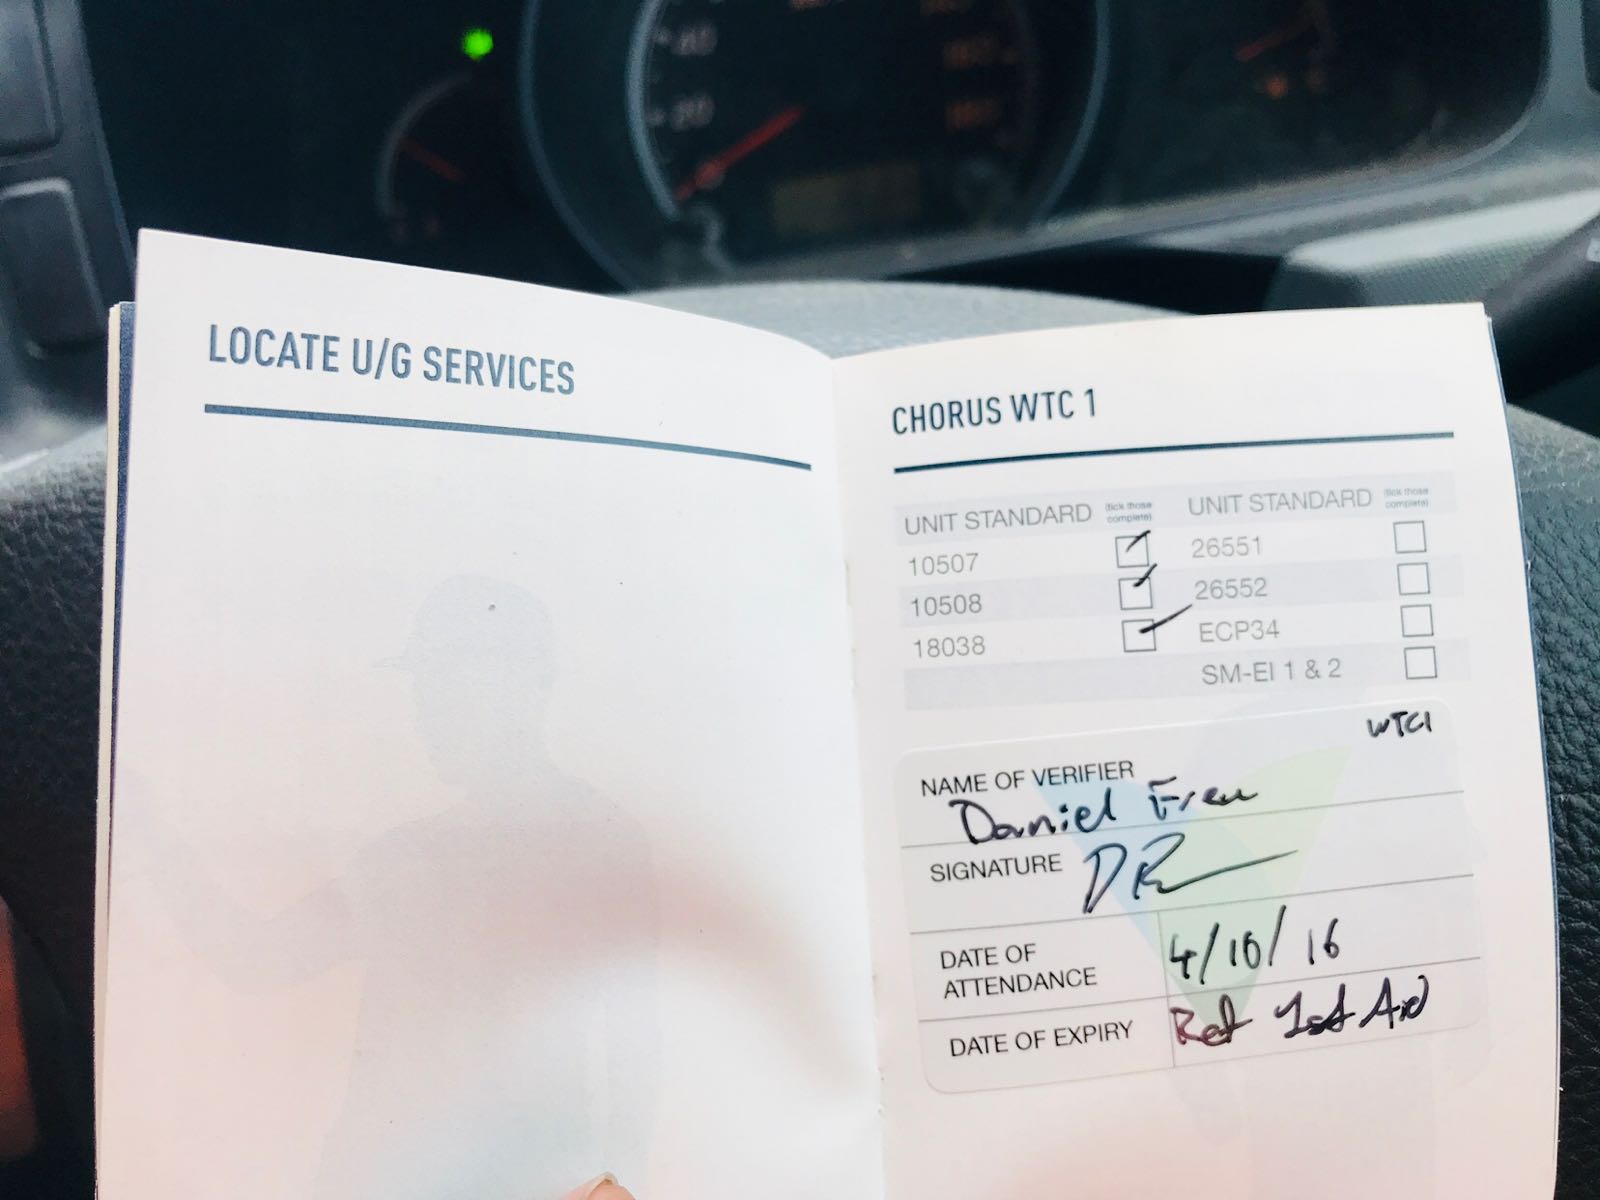 LOCATE U/G SERVICES
CHORUS WTC 1
UNIT STANDARD (tick those complete) UNIT STANDARD (tick those complete)
10507 26551
10508 26552
18038 ECP34
SM-EI 1 & 2
WTC1
NAME OF VERIFIER
Daniel
SIGNATURE
DATE OF ATTENDANCE 4/10/16
DATE OF EXPIRY Ref 1st Aid
20
40